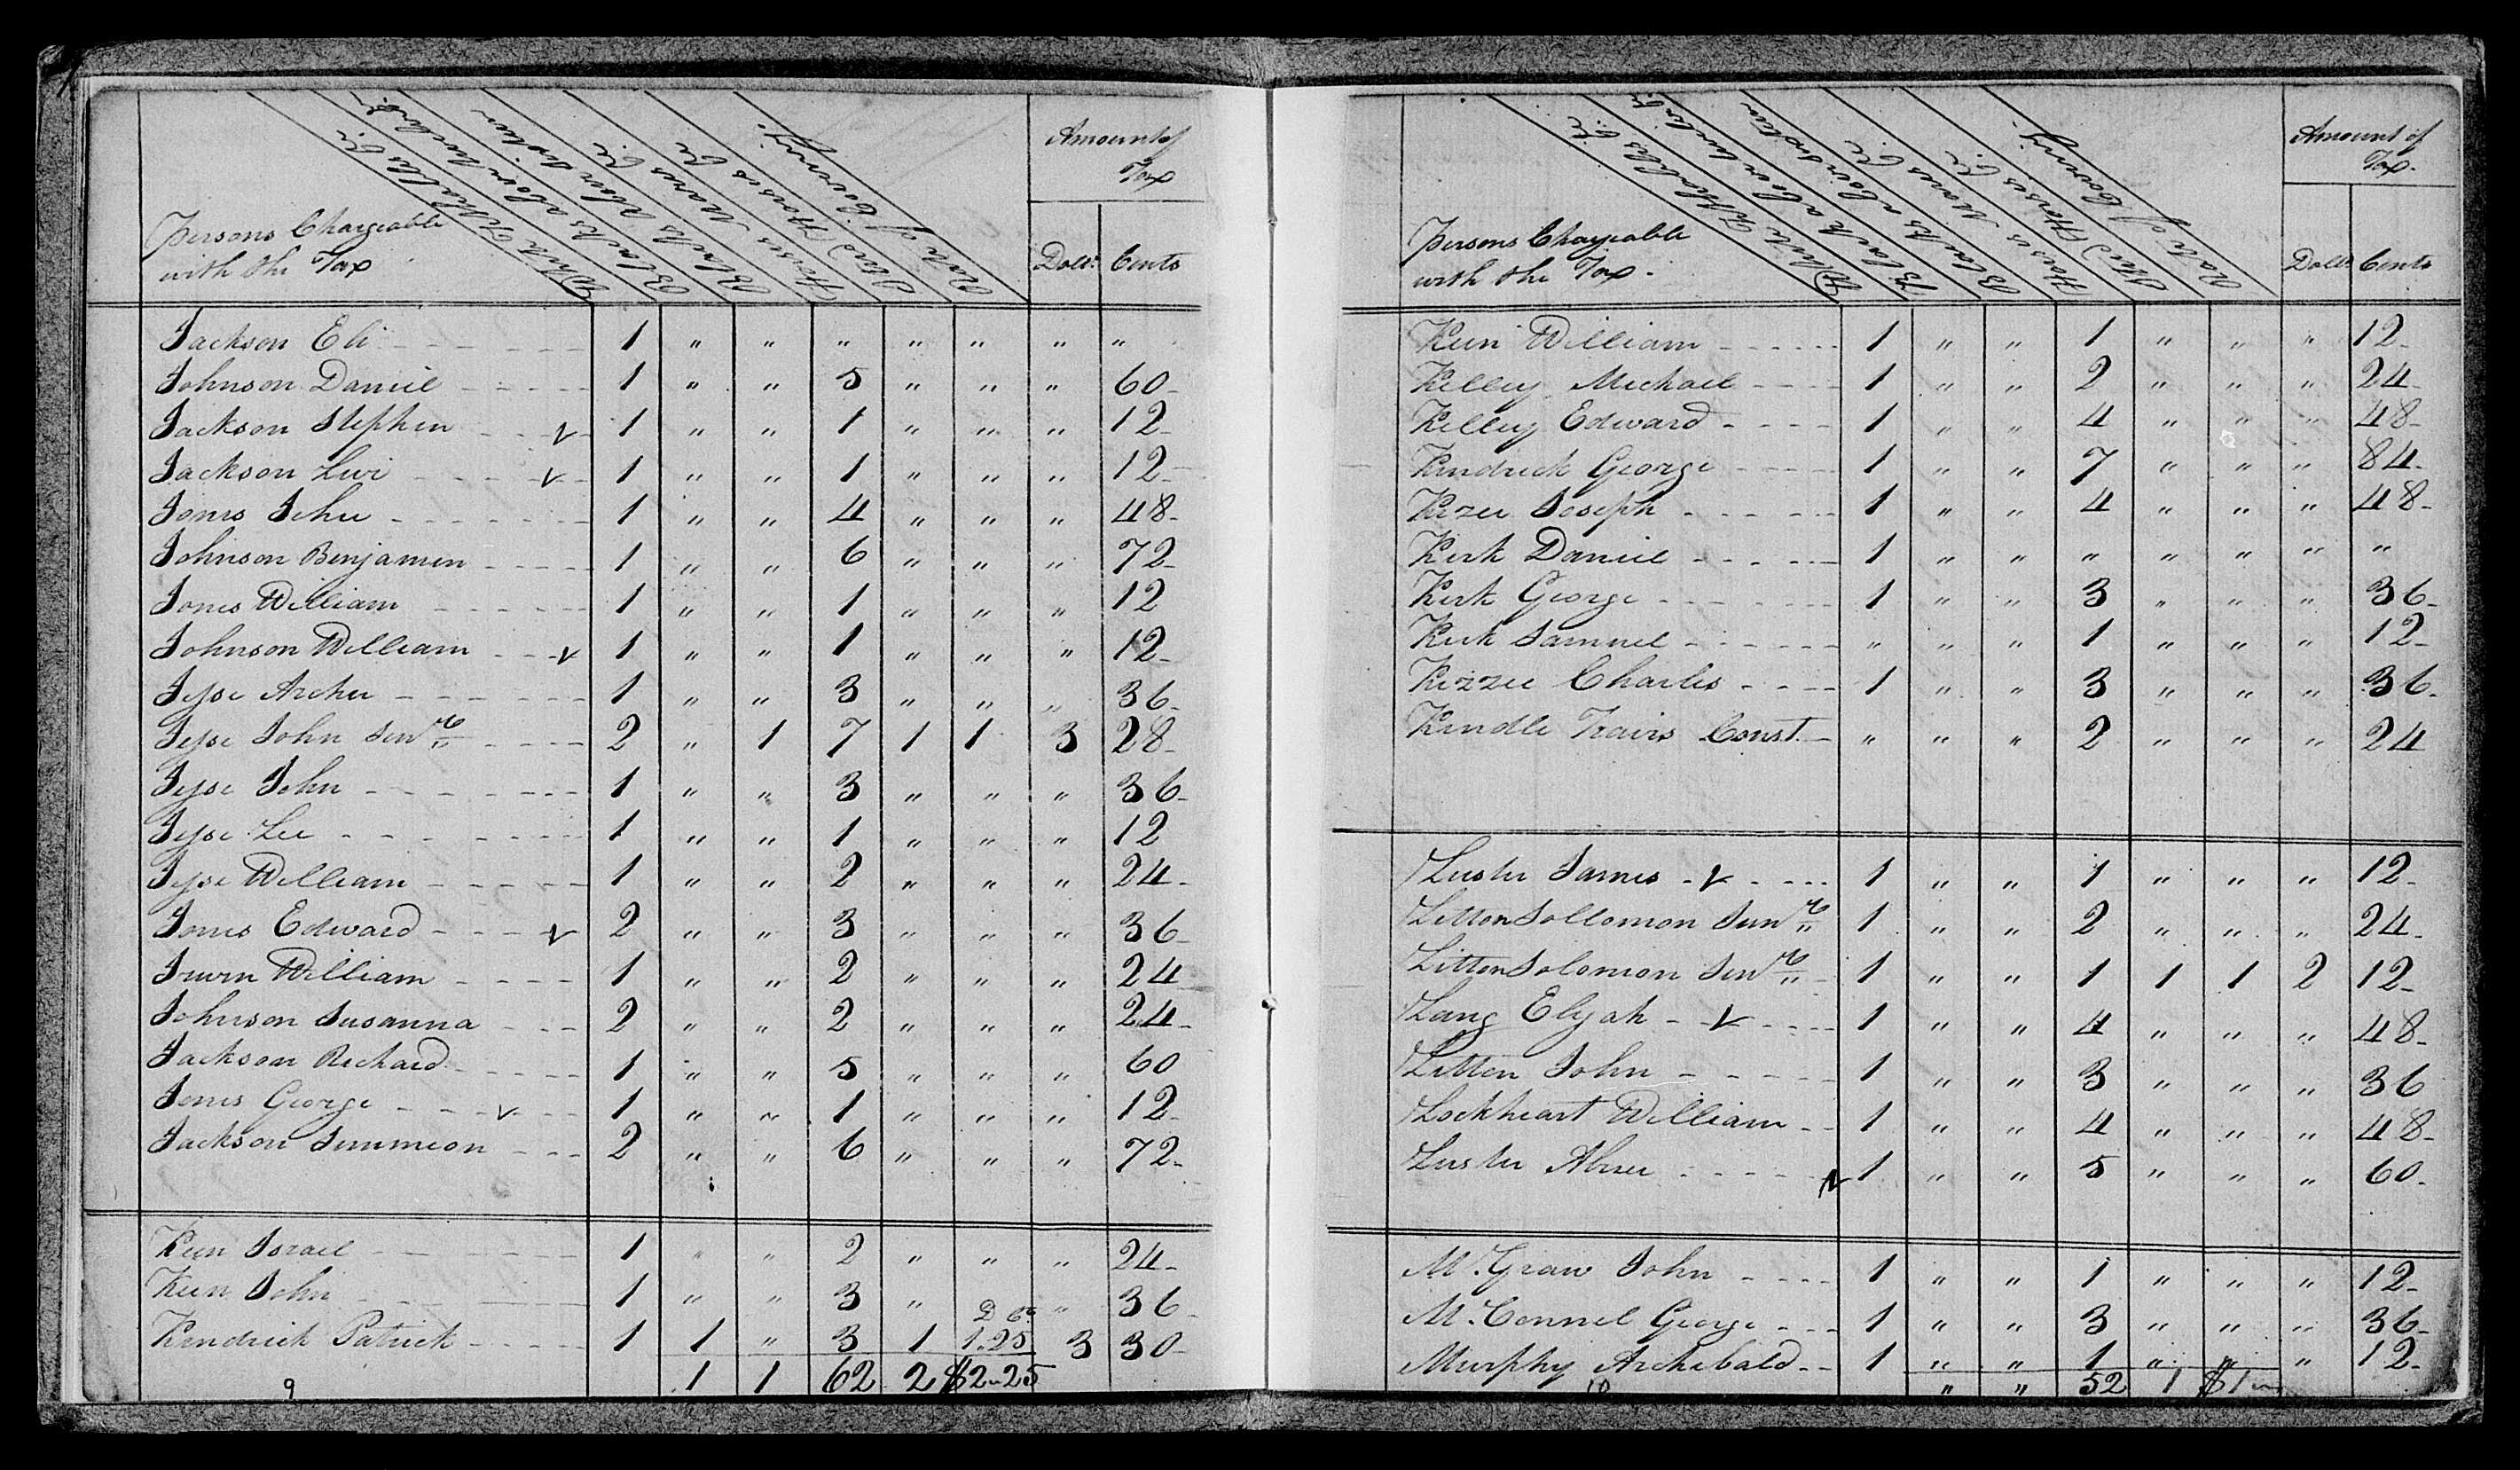 Persons Chargeable
with the Tax
White Tithables &c
Blacks above twelve &c
Blacks above sixteen
Horses Mares &c
Stud Horses &c
Rate of Covering
Amount of
Tax
Dolls. Cents
Jackson Eli 1 " " " " " " "
Johnson Daniel 1 " " 5 " " " 60
Jackson Stephen v 1 " " 1 " " " 12
Jackson Levi v 1 " " 1 " " " 12
Jones Jehu 1 " " 4 " " " 48
Johnson Benjamin 1 " " 6 " " " 72
Jones William 1 " " 1 " " " 12
Johnson William v 1 " " 1 " " " 12
Jesse Archer 1 " " 3 " " " 36
Jesse John Senr 2 " 1 7 1 1 3 28
Jesse John 1 " " 3 " " " 36
Jesse Lee 1 " " 1 " " " 12
Jesse William 1 " " 2 " " " 24
Jones Edward v 2 " " 3 " " " 36
Irwin William 1 " " 2 " " " 24
Johnson Susanna 2 " " 2 " " " 24
Jackson Richard 1 " " 5 " " " 60
Jones George v 1 " " 1 " " " 12
Jackson Simmeon 2 " " 6 " " " 72
Keen Israel 1 " " 2 " " " 24
Keen John 1 " " 3 " " 36
D Cts
Kendrick Patrick 1 1 " 3 1 1.25 3 30
1 1 62 2 $2-25
9
Persons Chargeable
with the Tax
White Tithables &c
Blacks above twelve &c
Blacks above sixteen
Horses Mares &c
Stud Horses &c
Rate of Covering
Amount of
Tax.
Dolls Cents
Keen William 1 " " 1 " " " 12
Kelley Michael 1 " " 2 " " " 24
Kelley Edward 1 " " 4 " " " 48
Kendrick George 1 " " 7 " " " 84
Kizer Joseph 1 " " 4 " " " 48
Kirk Daniel 1 " " " " " " "
Kirk George 1 " " 3 " " " 36
Kirk Samuel " " " 1 " " " 12
Kizzee Charles 1 " " 3 " " " 36
Kendle Travis Const. " " " 2 " " " 24
Luster James v 1 " " 1 " " " 12
Litton Sollomon Junr 1 " " 2 " " " 24
Litton Solomon Senr 1 " " 1 1 1 2 12
Lang Elijah v 1 " " 4 " " " 48
Litton John 1 " " 3 " " " 36
Lockheart William 1 " " 4 " " " 48
Luster Abner v 1 " " 5 " " " 60
Mc.Graw John 1 " " 1 " " " 12
Mc.Connel George 1 " " 3 " " " 36
Murphy Archibald 1 " " 1 " " " 12
" " 52 1 $1
10